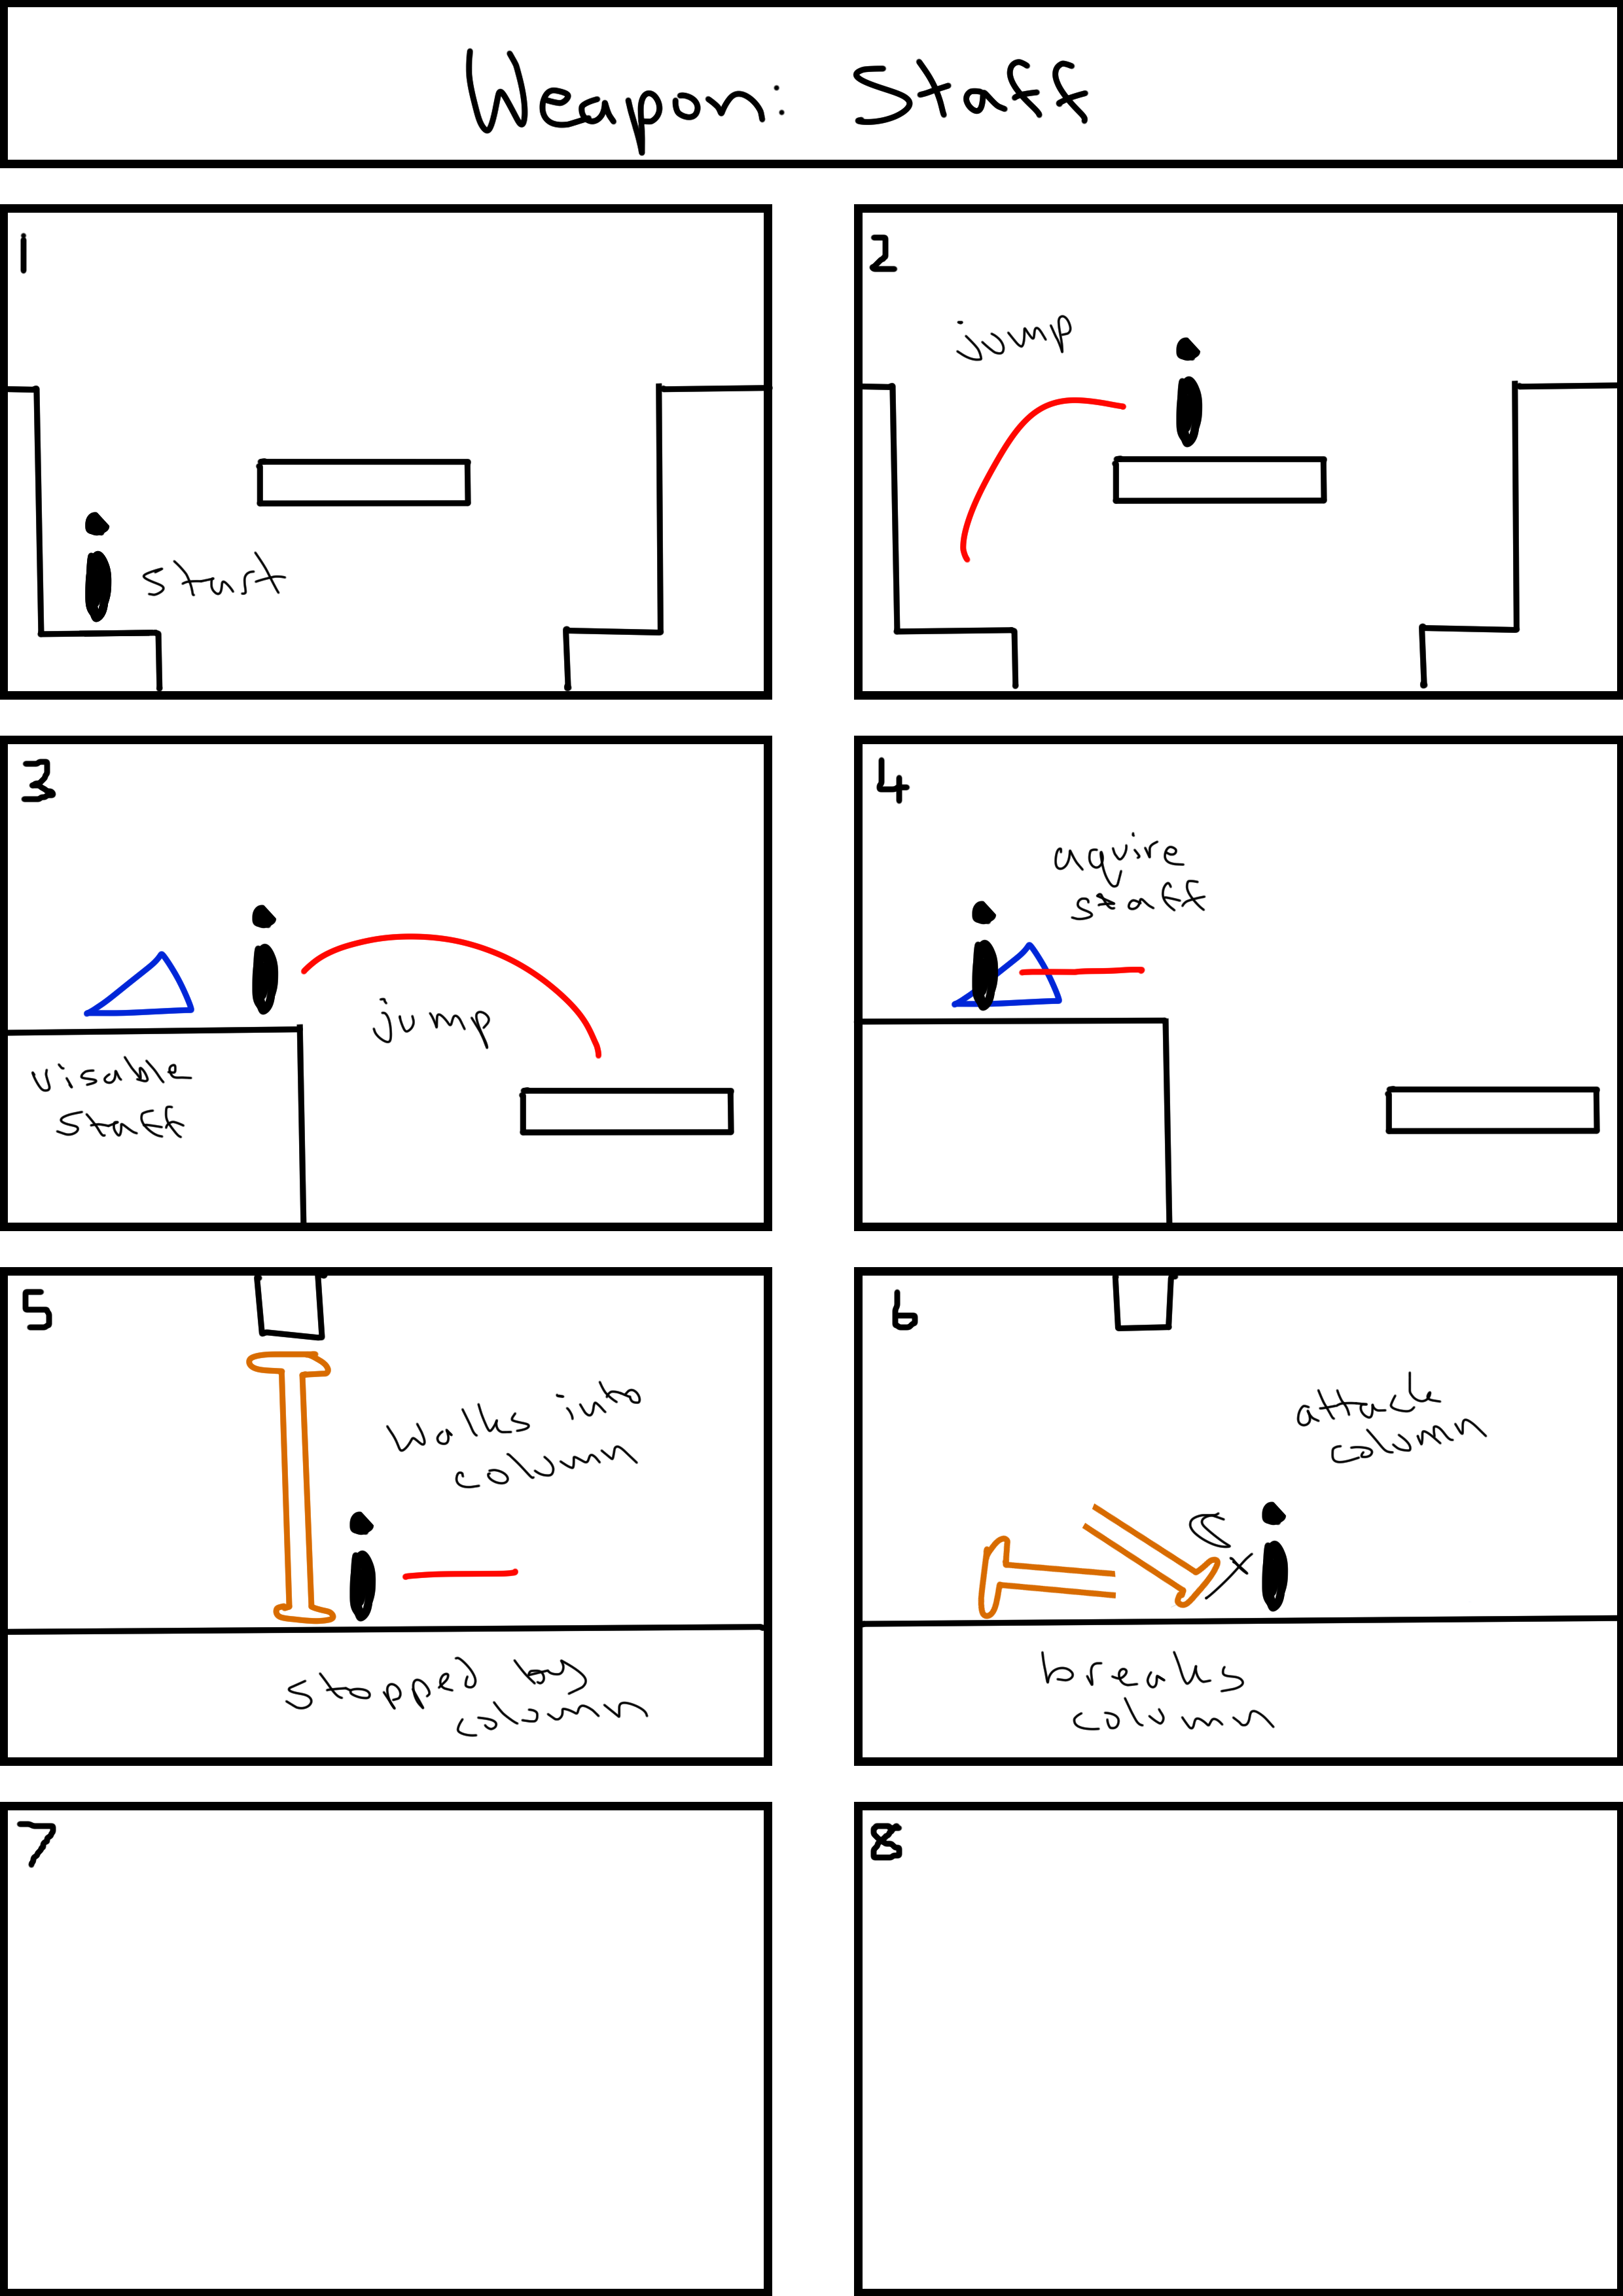 Weapon: Staff
1
start
2
jump
3
jump
visable
staff
4
aquire
staff
5
walks into
column
stopped by
column
6
attack
column
breaks
column
7
8